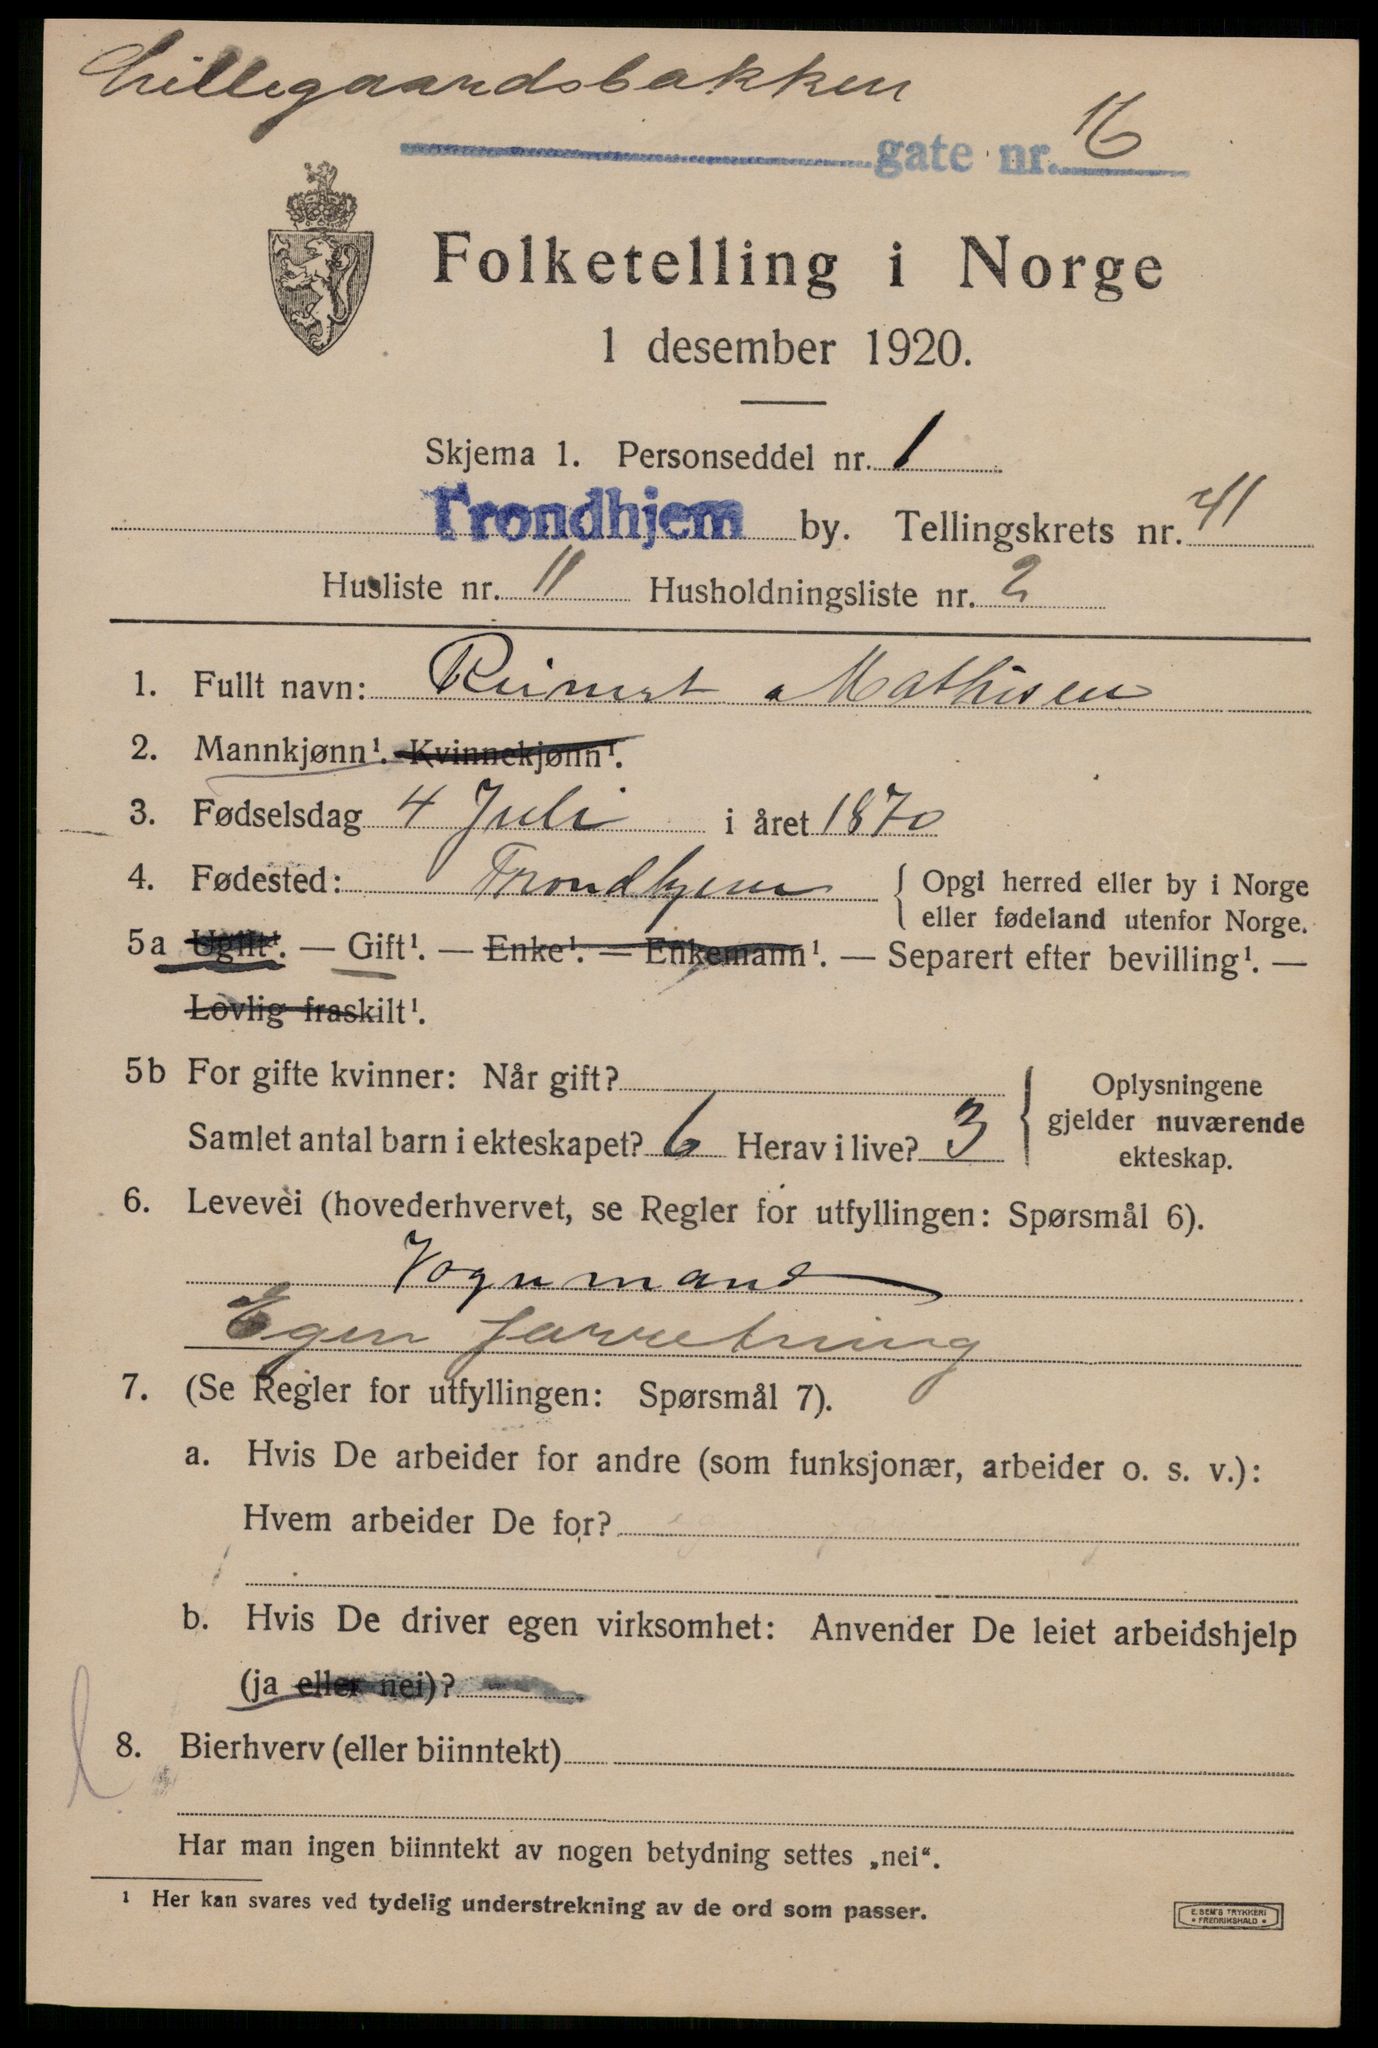 Lillegaardsbakken
gate nr. 16
Folketelling i Norge
1 desember 1920.
Skjema 1. Personseddel nr. 1
Trondhjem by. Tellingskrets nr. 41
Husliste nr. 11 Husholdningsliste nr. 2
1. Fullt navn: Reinert Mathisen
2. Mannkjønn¹. Kvinnekjønn¹.
3. Fødselsdag 4 Juli i året 1870
4. Fødested: Trondhjem { Opgi herred eller by i Norge
eller fødeland utenfor Norge.
5a Ugift¹. — Gift¹. — Enke¹. — Enkemann¹. — Separert efter bevilling¹. —
Lovlig fraskilt¹.
5b For gifte kvinner: Når gift?
Samlet antal barn i ekteskapet? 6 Herav i live? 3
} Oplysningene
gjelder nuværende
ekteskap.
6. Levevei (hovederhvervet, se Regler for utfyllingen: Spørsmål 6).
Vognmand
Egen forretning
7. (Se Regler for utfyllingen: Spørsmål 7).
a. Hvis De arbeider for andre (som funksjonær, arbeider o. s. v.):
Hvem arbeider De for?
b. Hvis De driver egen virksomhet: Anvender De leiet arbeidshjelp
(ja eller nei)?
8. Bierhverv (eller biinntekt)
Har man ingen biinntekt av nogen betydning settes „nei“.
¹ Her kan svares ved tydelig understrekning av de ord som passer.
E. SEM'S TRYKKERI
• FREDRIKSHALD •